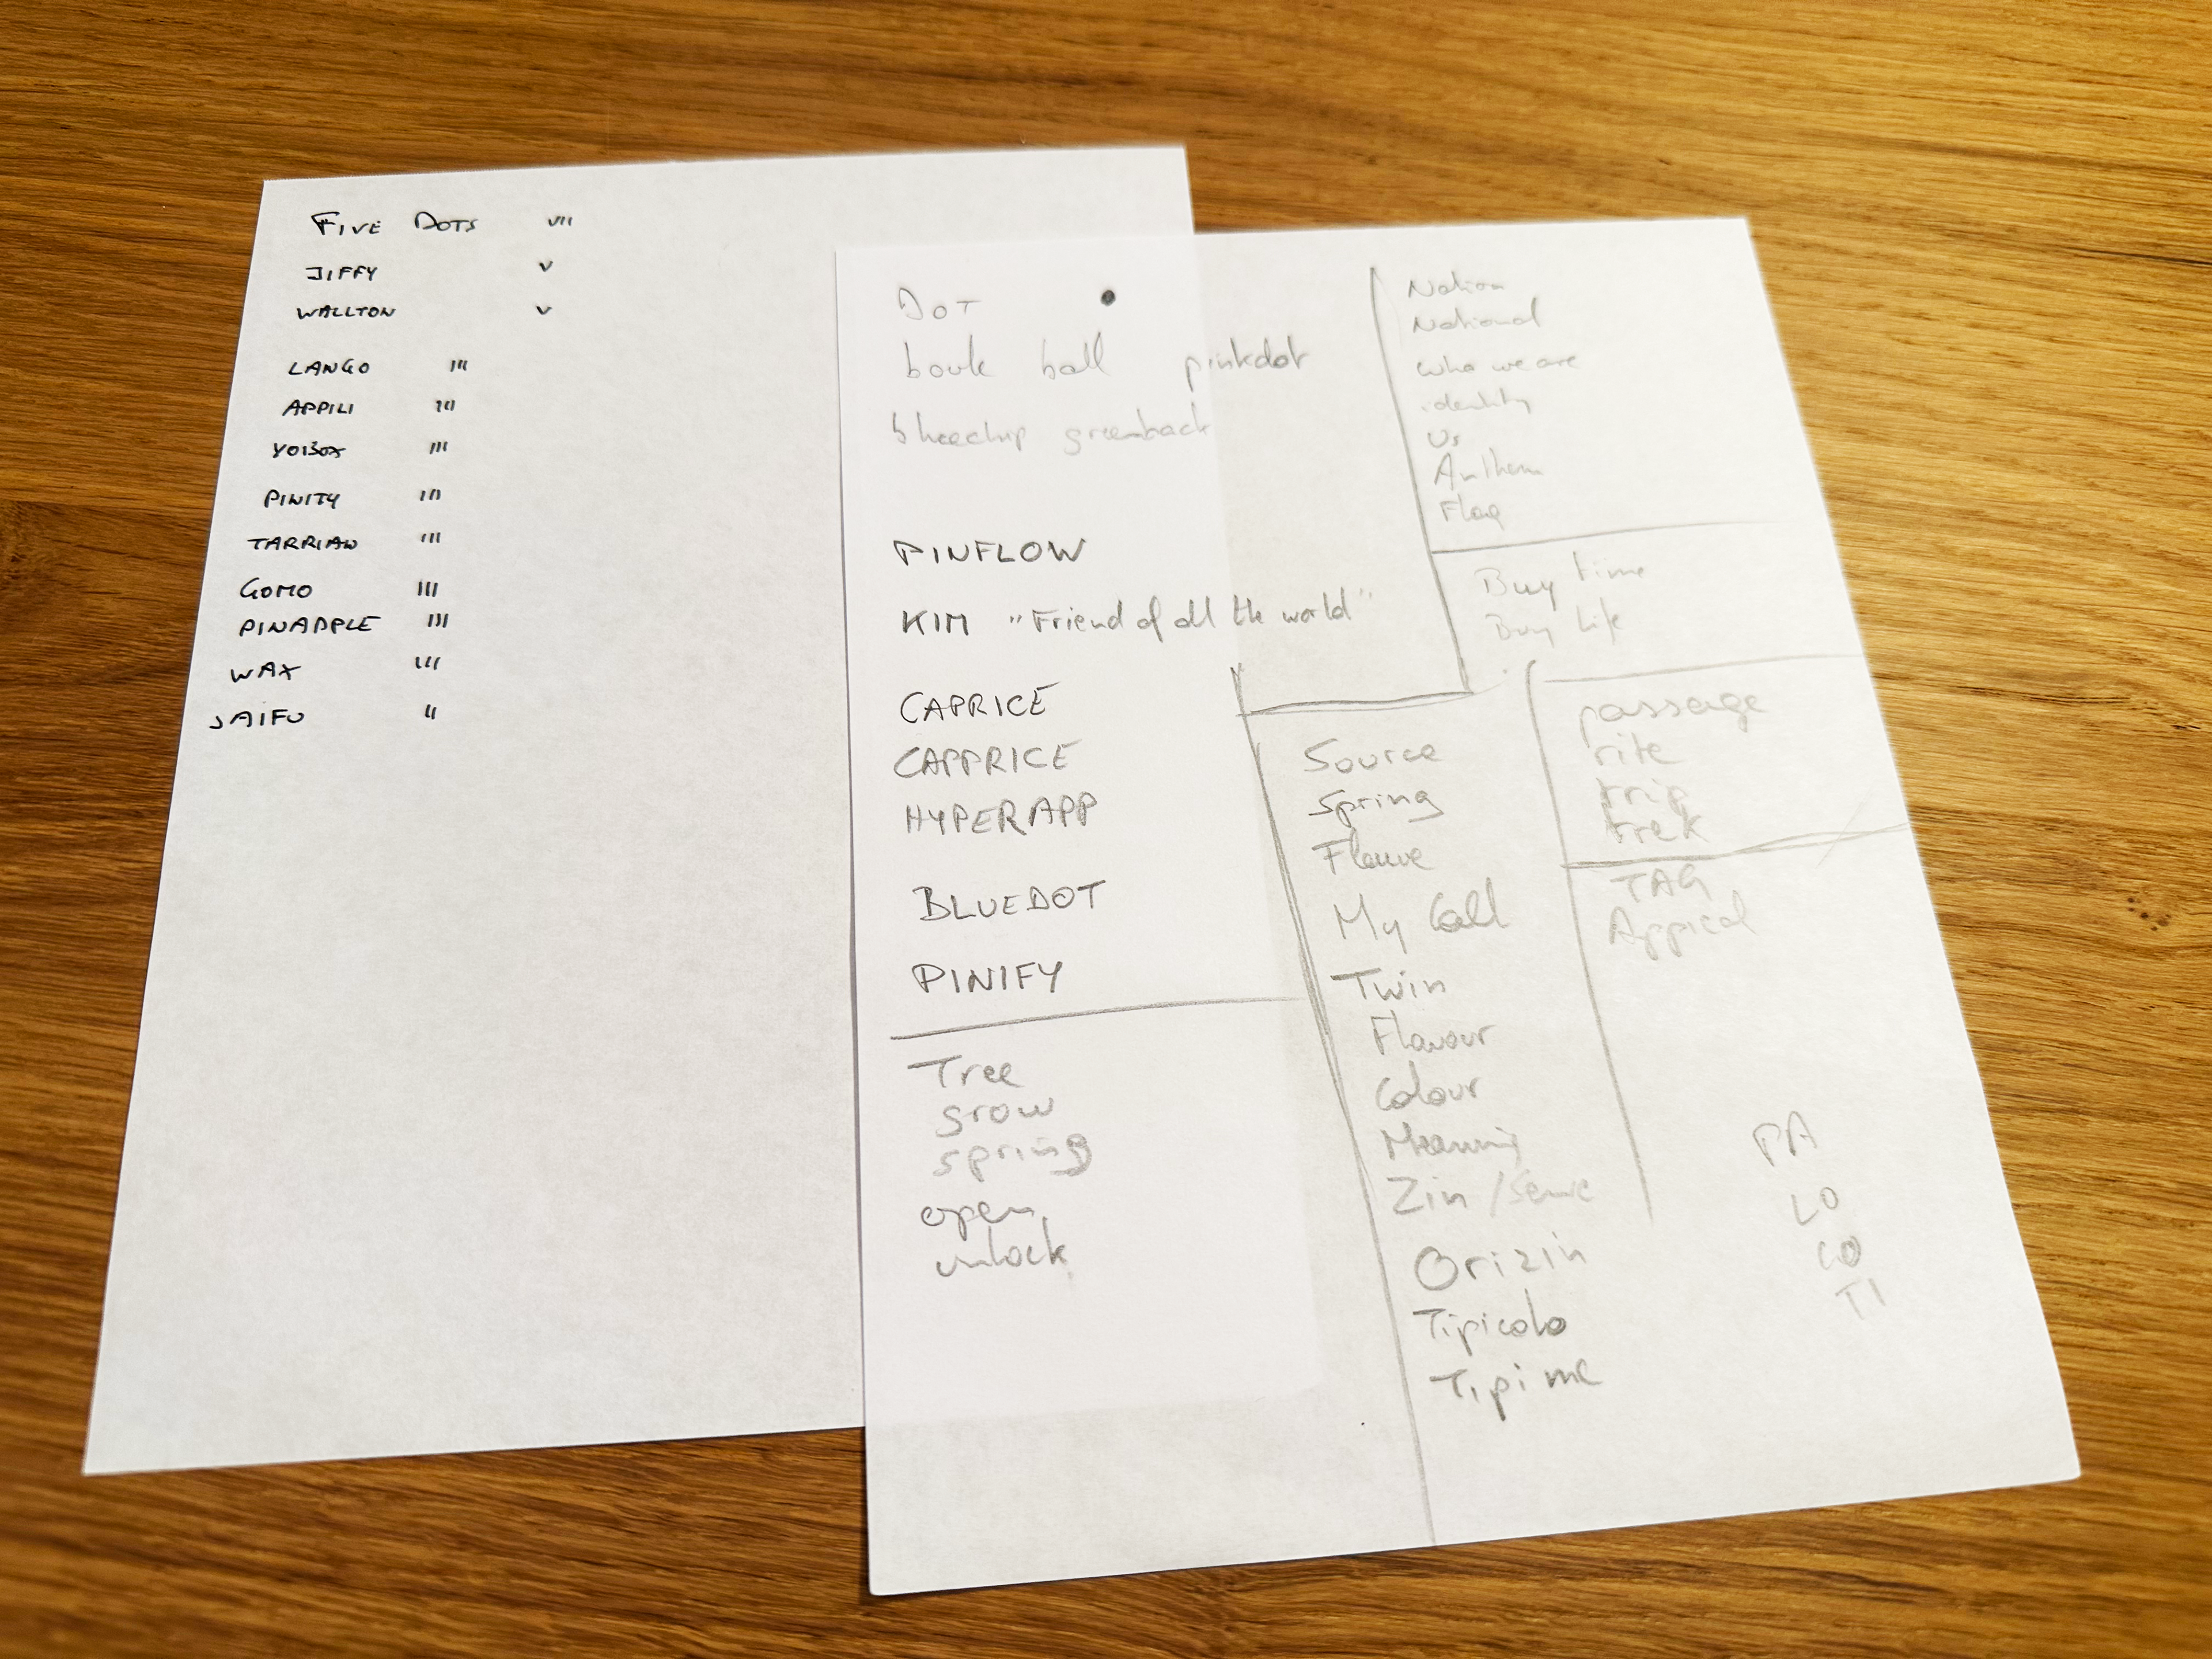 FIVE DOTS VII
JIFFY V
WALLTON V
LANGO III
APPILI III
YOIBOX III
PINITY III
TARRIAW III
GOMO III
PINAPPLE III
WAX III
SAIFU II
DOT
boule ball pinkdot
bluechip greenback
PINFLOW
KIM "Friend of all the world"
CAPRICE
CAPPRICE
HYPERAPP
BLUEDOT
PINIFY
Tree
grow
spring
open
unlock
Nation
National
who we are
identity
Us
Anthem
Flag
Buy time
Buy life
Source
Spring
My Call
Twin
Flavour
Colour
Meaning
Zin / Sense
Orizin
Tipicolo
Tipi me
passage
rite
trip
trek
TAG
Appical
PA
LO
CO
TI